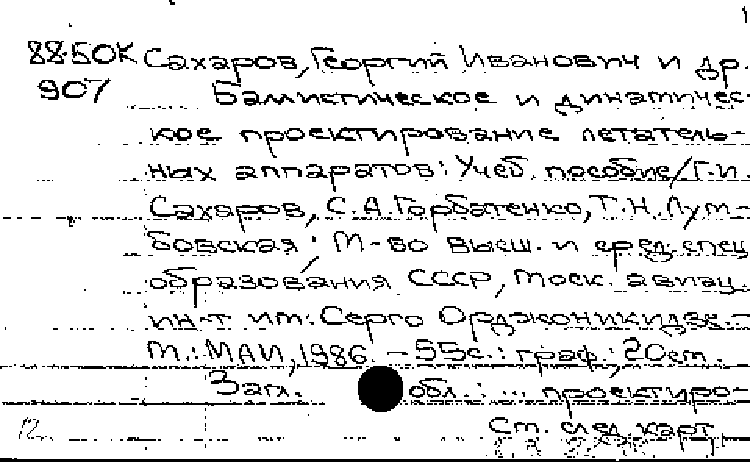 88-50К Сахаров, Георгий Иванович и др.
907 Баллистическое и динамичес-
кое проектирование летатель-
ных аппаратов: Учеб. пособие/Г.И.
Сахаров, С.А. Горбатенко, Т.Н. Лум-
бовская; М-во высш. и сред. спец.
образования СССР, Моск. авиац.
ин-т им. Серго Орджоникидзе. -
М.: МАИ, 1986. - 55с.: граф.; 20см.
Загл. обл.: ... проектиро-
12 См. след. карт.